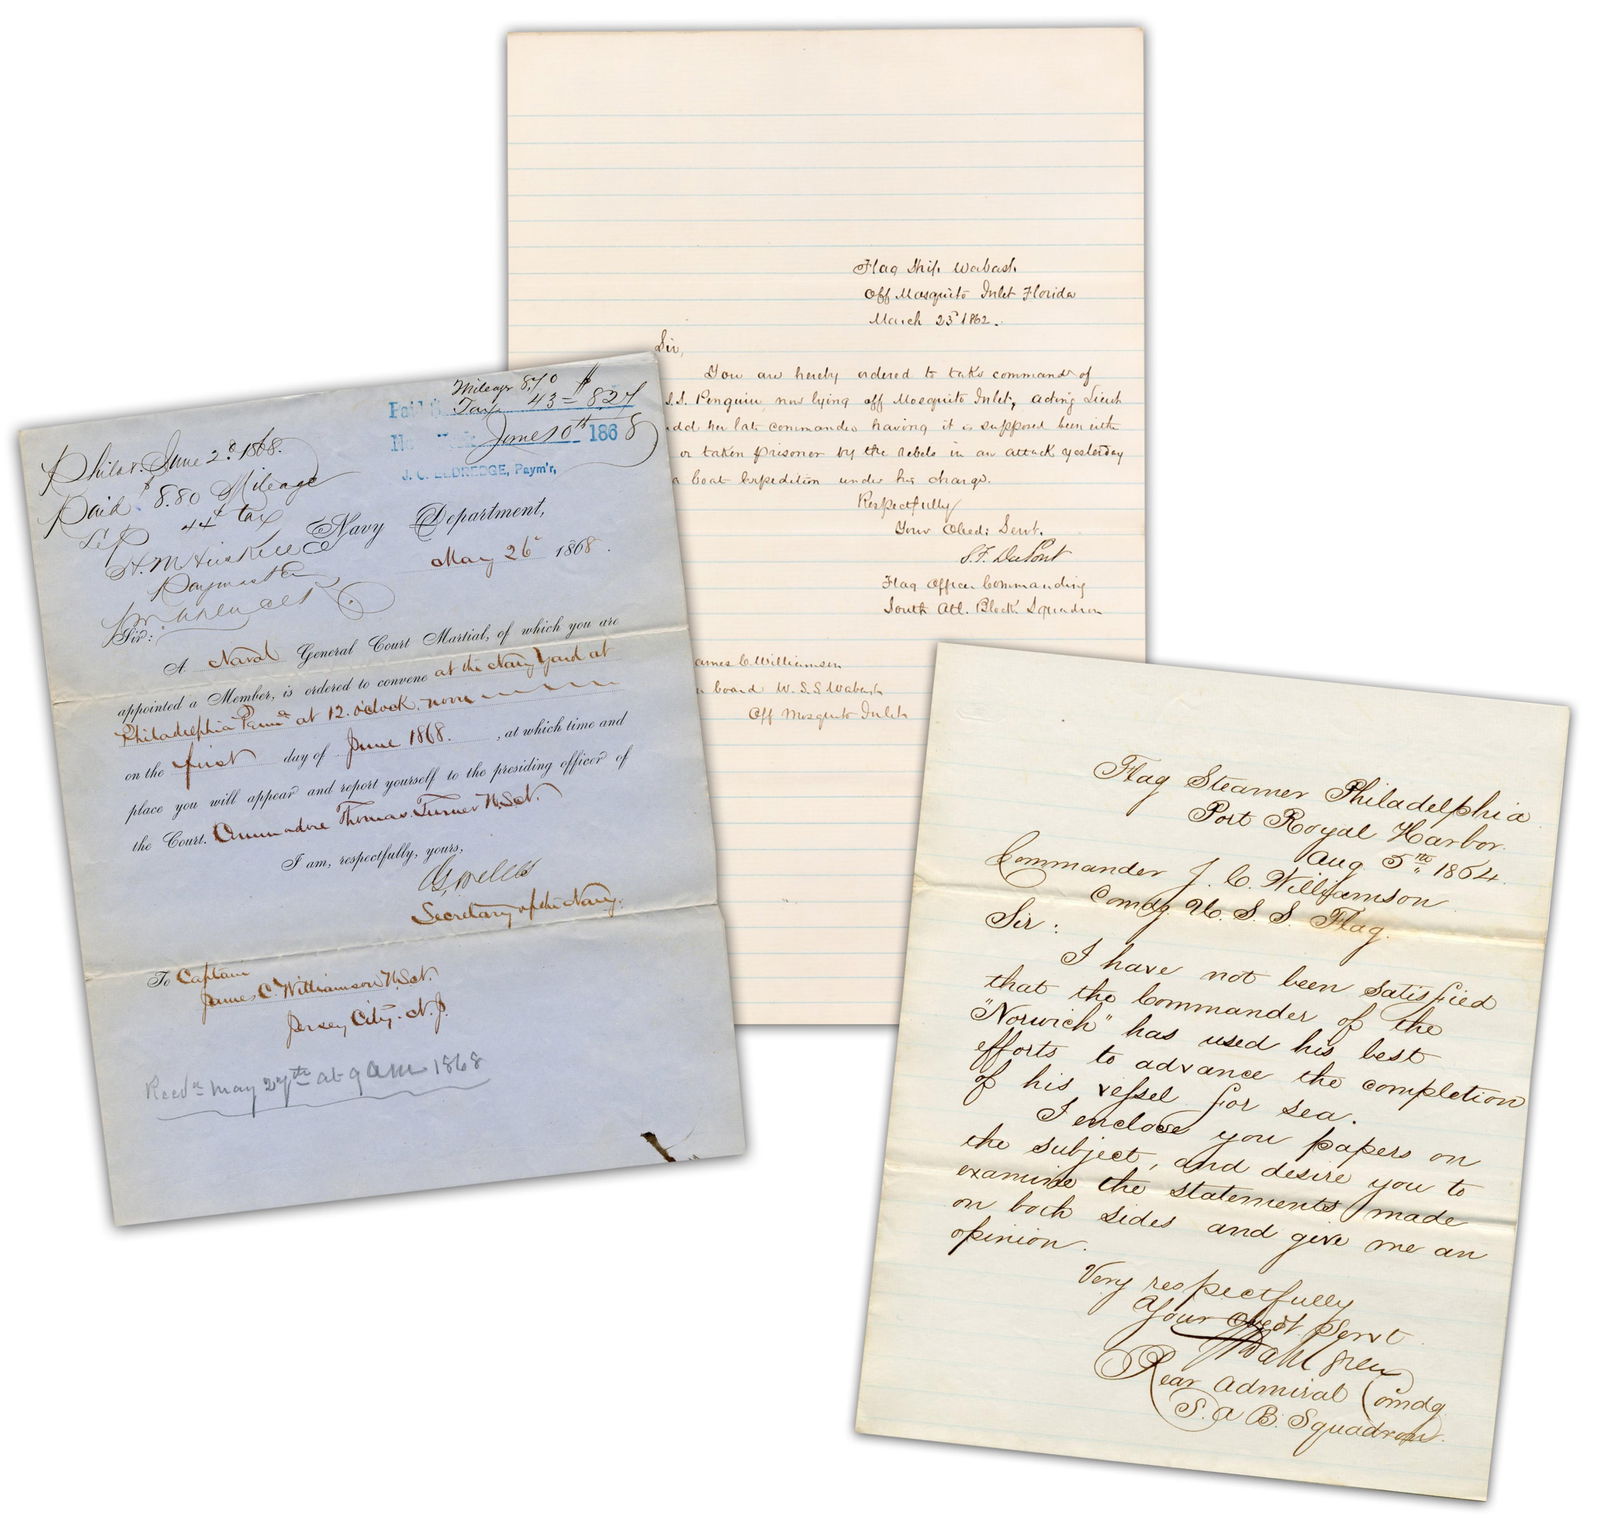 Flag Ship Wabash
Off Mosquito Inlet Florida
March 23d 1862.
Sir,
You are hereby ordered to take command of
S.S. Penguin now lying off Mosquito Inlet, acting Lieut
dd her late commander having it is supposed been eith
or taken prisoner by the rebels in an attack yesterday
a boat Expedition under his charge.
Respectfully
Your Obedt Servt.
S.F. DuPont
Flag Officer Commanding
South Atl. Block'g Squadron
ames C. Williamson
n board U.S.S Wabash
Off Mosquito Inlet
Mileage 8.70
Paid Tax 43 = 8.27
June 10th 1868
J. C. ELDREDGE, Paym'r,
Philad. June 2d 1868.
Paid $8.80 Mileage
44 tax
Paymaster
Navy Department,
May 26th 1868.
Sir:
A Naval General Court Martial, of which you are
appointed a Member, is ordered to convene at the Navy Yard at
Philadelphia Penna at 12. o'clock, noon
on the first day of June 1868. , at which time and
place you will appear and report yourself to the presiding officer of
the Court. Commodore Thomas. Turner U.S.N.
I am, respectfully, yours,
G Welles
Secretary of the Navy.
To Captain
James C. Williamson U.S.N.
Jersey City. N.J.
Recd May 27th at 9 am 1868
Flag Steamer Philadelphia
Port Royal Harbor.
Aug 5th 1864.
Commander J. C. Williamson
Comdg U. S. S. Flag.
Sir:
I have not been satisfied
that the Commander of the
"Norwich" has used his best
efforts to advance the completion
of his vessel for sea.
I enclose you papers on
the subject, and desire you to
examine the statements made
on both sides and give me an
opinion.
Very respectfully
Your Obedt Servt
Dahlgren
Rear Admiral Comdg
S. A B. Squadron.